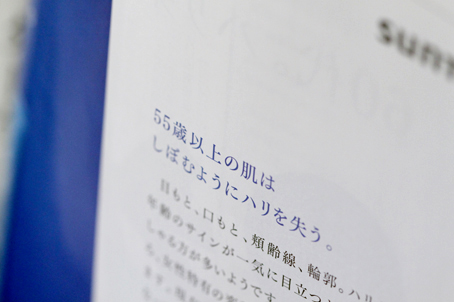 sunt
55歳以上の肌は
しぼむようにハリを失う。
目もと、口もと、頬齢線、輪郭。ハリ
年齢のサインが一気に目立つ
しゃる方が多いようです。
る。女性特有の
ます。